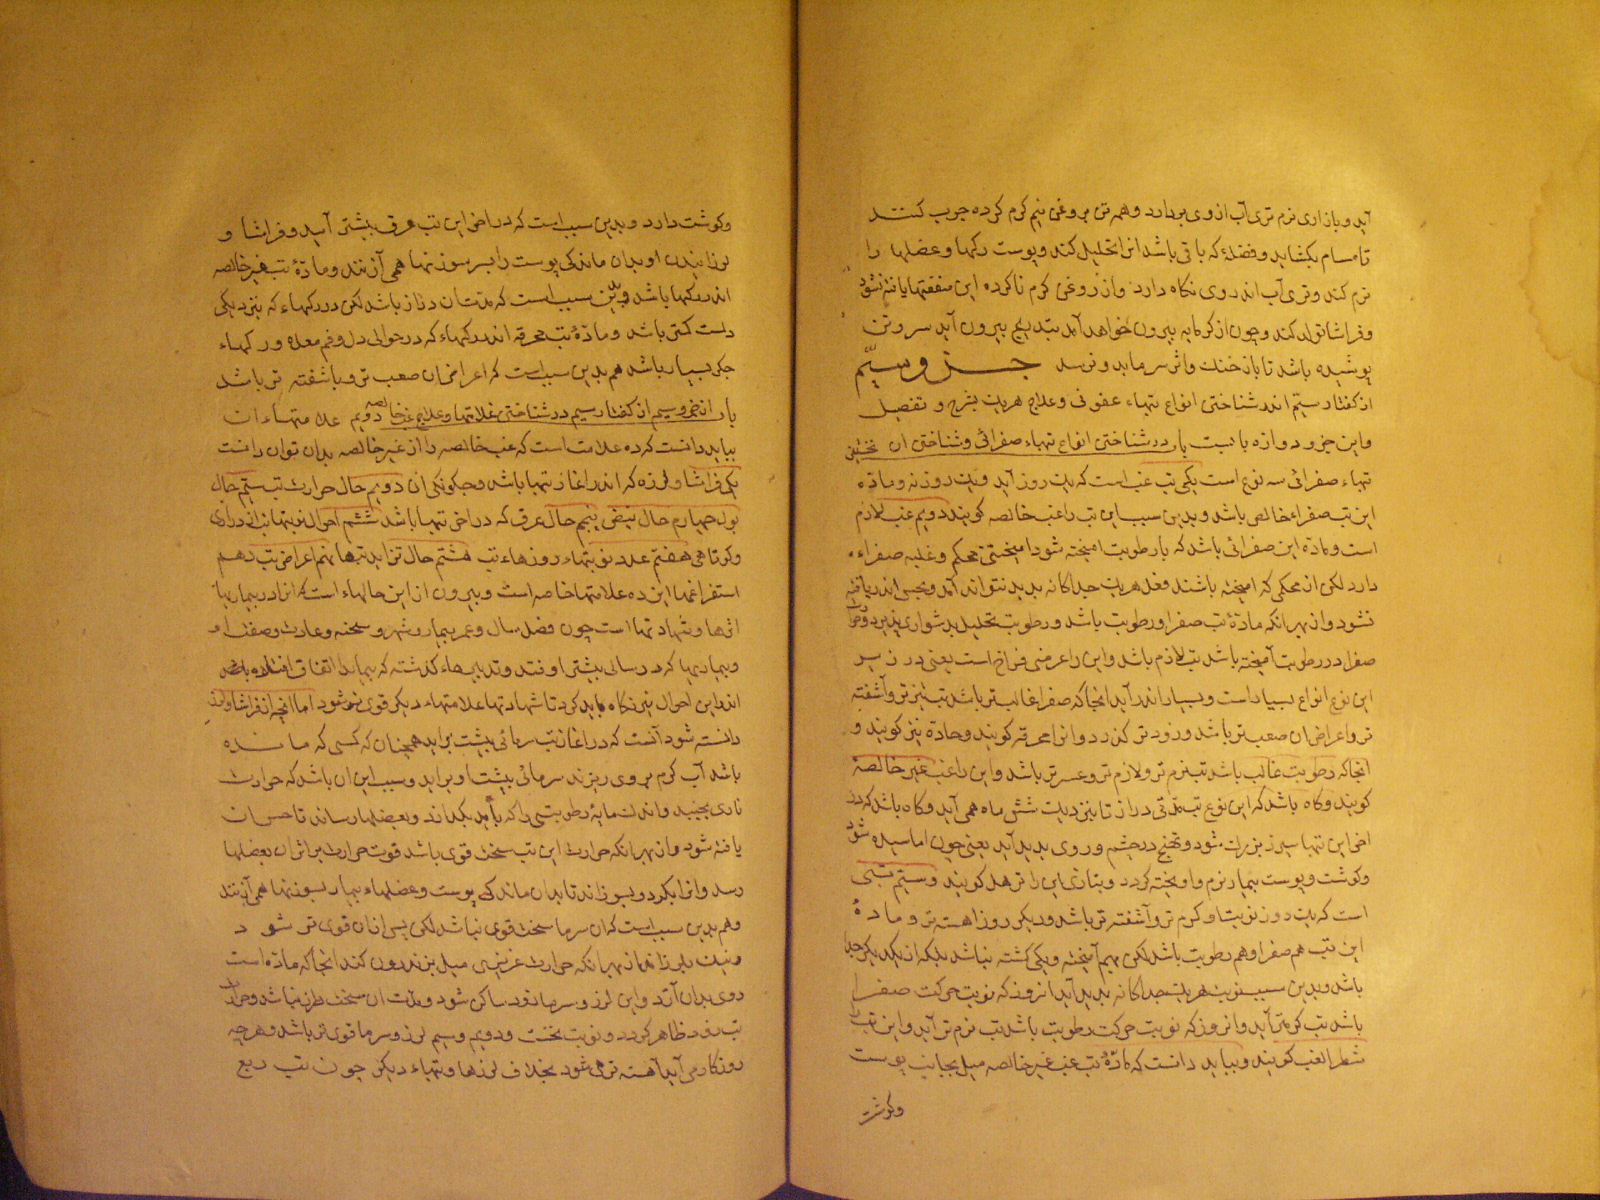 آید و بازاری نرم تری آب از وی بردارد و همه تن بروغن نیم گرم کرده چرب کنند
تا مسام بگشاید و فضلهٔ که باقی باشد انرا تحلیل کند و پوست رگها و عضلها را
نرم کند و تری آب اندر وی نگاه دارد و از روغن گرم ناکرده این منفعتها یافته نشود
و فراشا تولد کند و چون از گرمابه بیرون خواهد آمد بتدریج بیرون آید سر و تن
پوشیده باشد تا باد خنک و اثر سرما بدو نرسد جزو سیّم
از گفتار سیم اندر شناختن انواع تبهاء عفونی و علاج هر یک بشرح و تفصیل
و این جزو دوازه بابست باب در شناختن انواع تبهاء صفرائی و شناختن ان نخستین
تبهاء صفرائی سه نوع است یکی تب غب است که یک روز آید و یک روز نه و مادّه
این تب صفراء خالص باشد و بدین سبب این تب را غب خالصه گویند دویم غب لازم
است و مادّه این صفرائی باشد که با رطوبت امیخته شود امیختنی محکم و غلبه صفراء
دارد لکن از محکمی که امیخته باشند فعل هر یک جداگانه پدید نتواند آمد و بحس اندر یافته
نشود و از بهر انکه مادّهٔ تب صفرا و رطوبت باشد و رطوبت تحلیل بدشواری پذیرد و
صفرا در رطوبت آمیخته باشد تب لازم باشد و این را عرضی فراخ است یعنی در زیر
این نوع انواع بسیار است و بسیار اندر آید انجا که صفرا غالب تر باشد تب تیز تر و آشفته
تر و اعراض ان صعب تر باشد و زود تر گذرد و انرا محرقه گویند و حادة نیز گویند و
انجا که رطوبت غالب باشد تب نرم تر و لازم تر و عسر تر باشد و این را غب غیر خالصه
گویند و گاه باشد که این نوع تب مدّتی دراز تا نزدیک شش ماه همی آید و گاه باشد که در
اخر این تبها سپرز بزرک شود و تهبّج در چشم و روی پدید آید یعنی چون اماسیده شود
و گوشت و پوست بیمار نرم و اویخته گردد و بتازی این را ترهل گویند و سیّم تبی
است که یک روز نوبت او گرم تر و آشفته تر باشد و دیگر روز اهسته تر و مادهٔ
این تب هم صفرا و هم رطوبت باشد لکن بهم آمیخته و یکی گشته نباشد بلکه از یکدیگر جدا
باشد و بدین سبب نوبت هر یک جداگانه پدید آید انروز که نوبت حرکت صفرا
باشد تب گرمتر آید و انروز که نوبت حرکت رطوبت باشد تب نرم تر آید و این تب را
شطر الغب گویند و بباید دانست که مادّهٔ تب غب غیر خالصه میل بجانب پوست
و گوشت
و گوشت دارد و بدین سبب است که در اخر این تب عرق بیشتر آید و فراشا و
لرزانیدن او بدان ماند کی پوست را بسر سوزنها همی آژنند و مادّهٔ تب غیر خالصه
اندر رگها باشد و بدین سبب است که مدّت ان دراز باشد لکن در رگهاء که بنزدیکی
پوست کمتر باشد و مادّهٔ تب محرقه اندر رگهاء که در حوالی دل و فم معده و رگهاء
جگر بسیار باشد هم بدین سبب است که اعراض ان صعب تر و باشفته تر باشد
باب از جزو سیم از گفتار سیم در شناختن علامتها و علاج غب خالصه دویم علامتهاء ان
بباید دانست که ده علامت است که غب خالصه را از غیر خالصه بدان توان دانست
یکی فراشا و لرزه که اندر اغاز تبها باشد و چگونگی ان دویم حال حرارت تب سیّم حال
بول چهارم حال نبض پنجم حال عرق که در اخر تبها باشد ششم احوال نوبتها بدرازی
و کوتاهی هفتم عدد نوبتهاء روزهاء تب هشتم حال تزاید تبها نهم اعراض تب دهم
استفراغها این ده علامتها خاصه است و بیرون از این حالهاء است که انرا در بیماریها
اثرها و شهادتها است چون فصل سال و عمر بیمار و شهر و سحنه و عادت و صفت او
و بیماریها که در سالی بیشتر اوفتد و تدبیرهاء گذشته که بیمار را اتفاق افتاده باشد
اندر این احوال نیز نگاه باید کرد تا شهادتها علامتهاء دیگر قوی شود اما انچه از فراشا و لرز
دانسته شود آنست که در اغاز تب سرمائی بپشت براید همچنان که کسی که مانده
باشد آب گرم بر وی ریزند سرمائی بپشت او براید و سبب این ان باشد که حرارت
ناری بجنبد و اندک مایهٔ رطوبتی را که یابد بگدازد و بعضلها رساند تا حس ان
یافته شود و از بهر انکه حرارت این تب سخت قوی باشد قوت حرارت بر اثر ان بعضلها
رسد و انرا بگیرد و بسوزاند تا بدان ماند کی پوست و عضلهاء بیمار بسوزنها همی آژنند
و هم بدین سبب است که ان سرما سخت قوی نباشد لکن پس از ان قوی تر شود
و نیک بلرزاند از بهر انکه حرارت غریزی میل بزندرون کند انجا که مادّه است
روی بدان آرد و این لرز و سرما زود ساکن شود و مدّت ان سخت دراز نباشد و حرارت
تب زود ظاهر گردد و نوبت نخست و دویم و سیم لرز و سرما قوی تر باشد و هر چه
روزگار بر آید آهسته تر همی شود بخلاف لرزها و تبهاء دیگر چون تب ربع